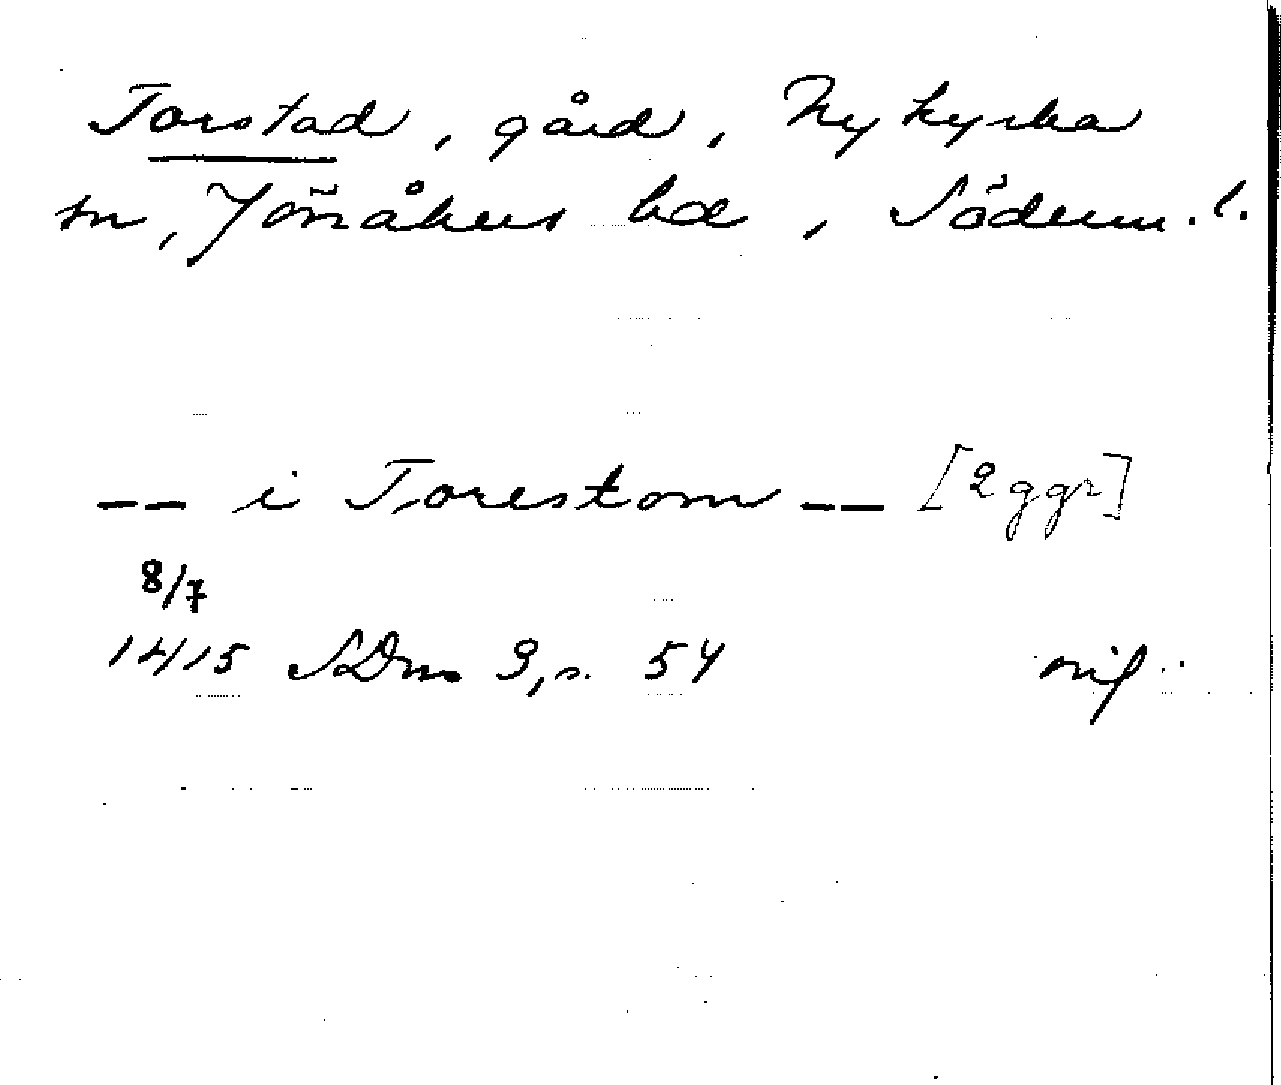 Torstad, gård, Nykyrka
sn, Jönåkers hd, Söderm. l.
-- i Torestom -- [2 ggr]
8/7
1415 SDns 3, s. 54